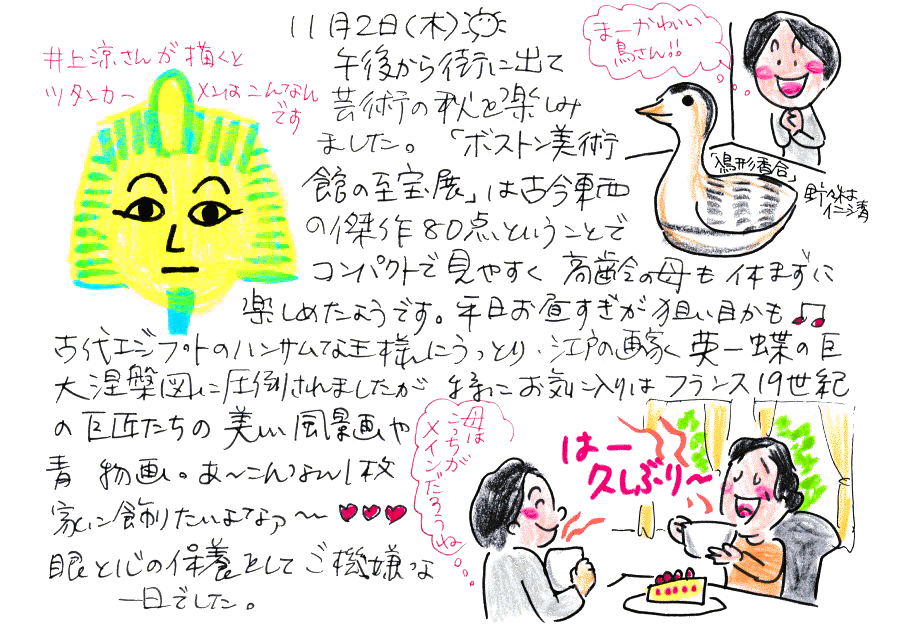 11月2日(木)
午後から街に出て
芸術の秋を楽しみ
ました。「ボストン美術
館の至宝展」は古今東西
の傑作80点ということで
コンパクトで見やすく 高齢の母も休まずに
楽しめたようです。平日お昼すぎが狙い目かも
古代エジプトのハンサムな王様にうっとり、江戸の画家 英一蝶の巨
大涅槃図に圧倒されましたが 特にお気に入りは フランス19世紀
の巨匠たちの 美しい風景画や
青 物画。あ〜こんなん1枚
家に飾りたいよなァ〜
眼と心の保養をして ご機嫌な
一日でした。
井上涼さんが描くと
ツタンカーメンはこんなん
です
まーかわいい
鳥さん!!
「鳥形香合」
野々村
仁清
母は
こっちが
メインだろうね
はー
久しぶり〜